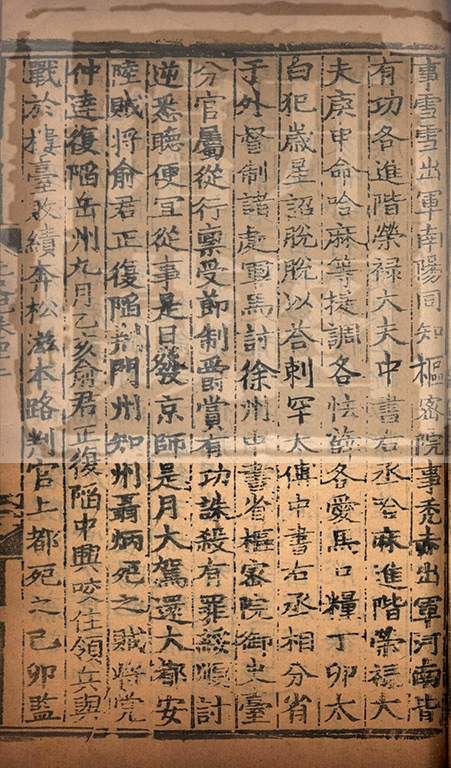 事雪雪出軍南陽同知樞密院事禿赤出軍河南皆
有功各進階榮祿大夫中書右丞哈麻進階榮祿大
夫庚申命哈麻等提調各怯薛各愛馬口糧丁卯太
白犯歲星詔脫脫以答剌罕太傅中書右丞相分省
于外督制諸處軍馬討徐州中書省樞密院御史臺
分官屬從行禀受節制爵賞有功誅殺有罪綏順討
逆悉聽便宜從事是日發京師是月大駕還大都安
陸賊將俞君正復陷荊門州知州聶炳死之賊將党
仲達復陷岳州九月乙亥俞君正復陷中興咬住領兵與
戰於樓臺敗績奔松滋本路判官上都死之己卯監